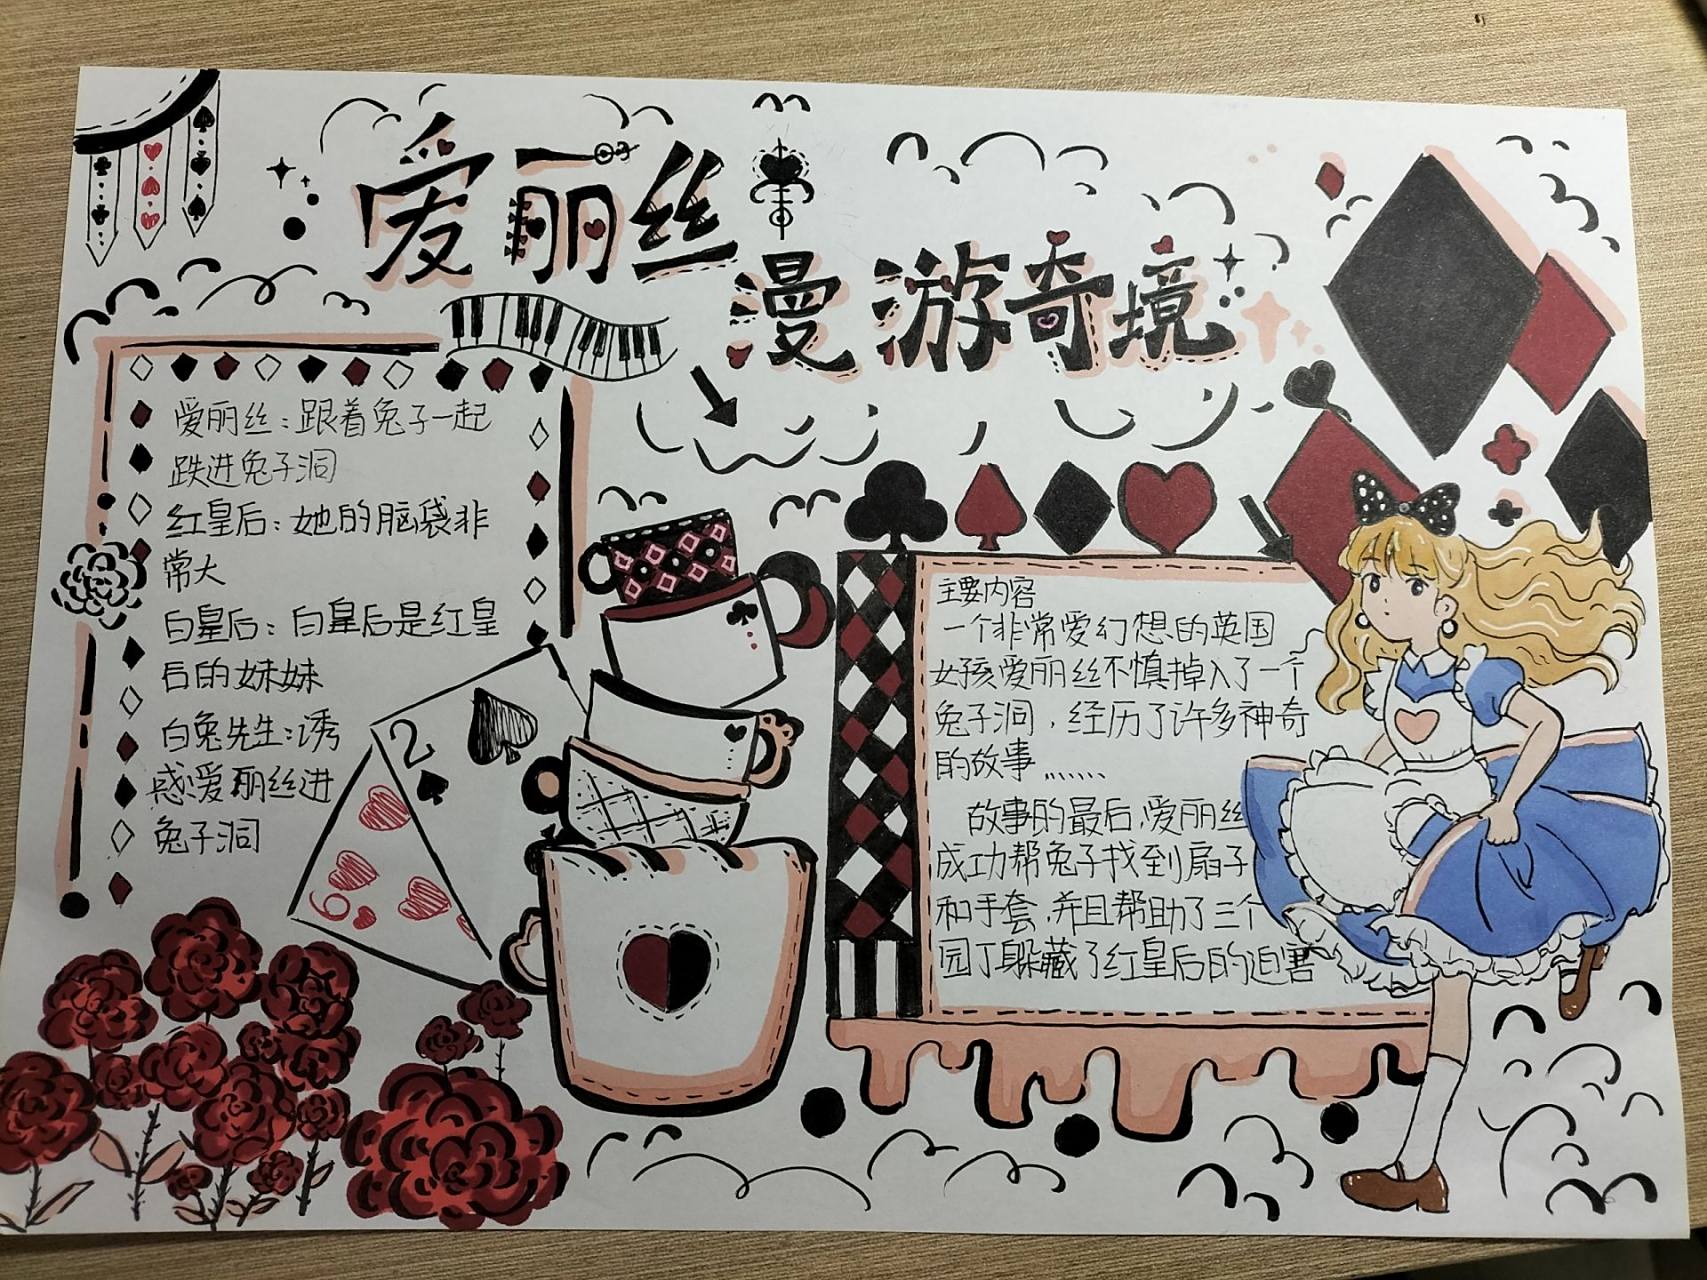 爱丽丝
漫游奇境
爱丽丝：跟着兔子一起
跌进兔子洞
红皇后：她的脑袋非
常大
白皇后：白皇后是红皇
后的妹妹
白兔先生：诱
惑爱丽丝进
兔子洞
2
6
主要内容
一个非常爱幻想的英国
女孩爱丽丝不慎掉入了一个
兔子洞，经历了许多神奇
的故事……
故事的最后，爱丽丝
成功帮兔子找到扇子
和手套，并且帮助了三个
园丁躲藏了红皇后的迫害